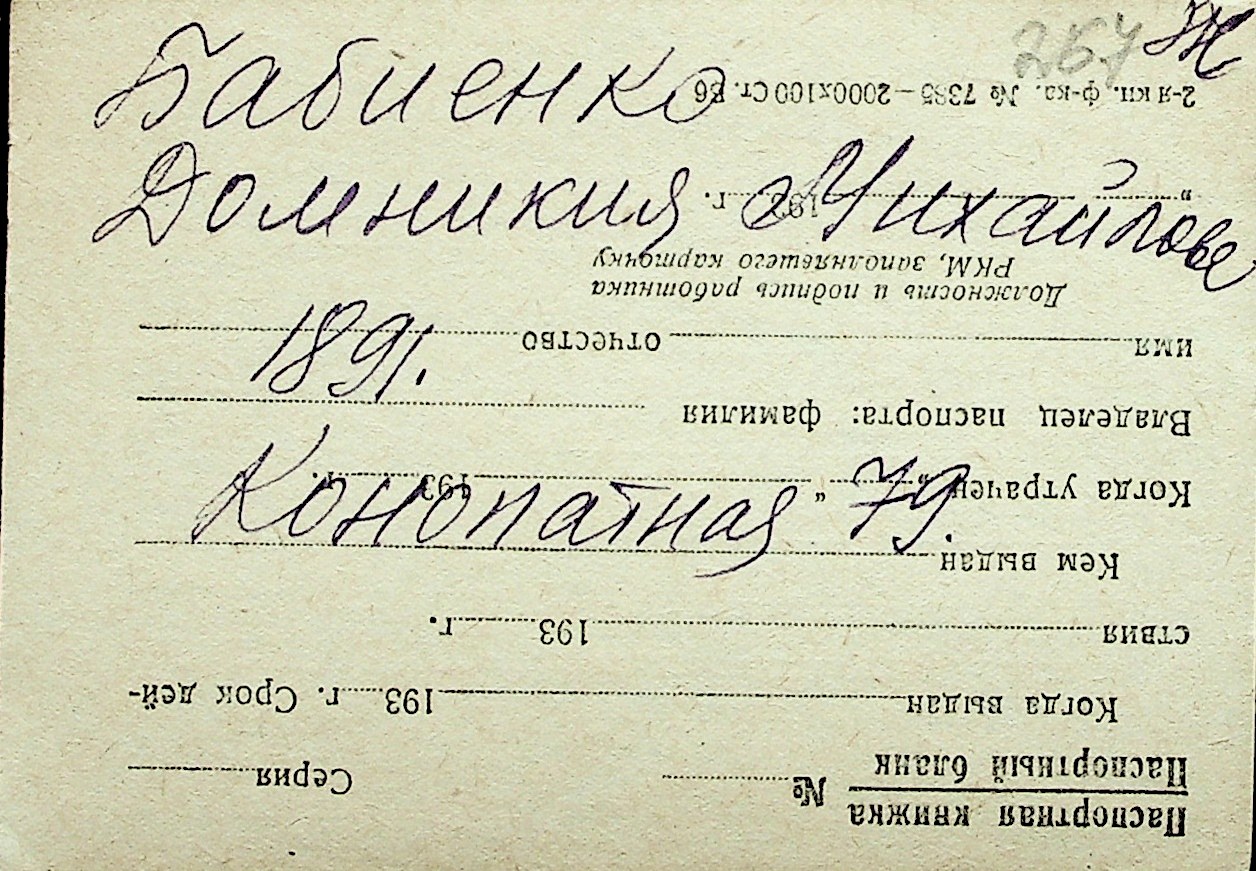 267 Ж
Бабиенко
Домникия Михайлов
1891.
Конопатная 79.
Паспортная книжка
Паспортный бланк
№ Серия
Когда выдан 193 г. Срок дей-
ствия 193 г.
Кем выдан
Когда утрачен „ “ 193 г.
Владелец паспорта: фамилия
имя отчество
Должность и подпись работника
РКМ, заполняешего карточку
„ 193 г.
2-я кн. ф-ка. № 7385—2000х100 Ст. Б6